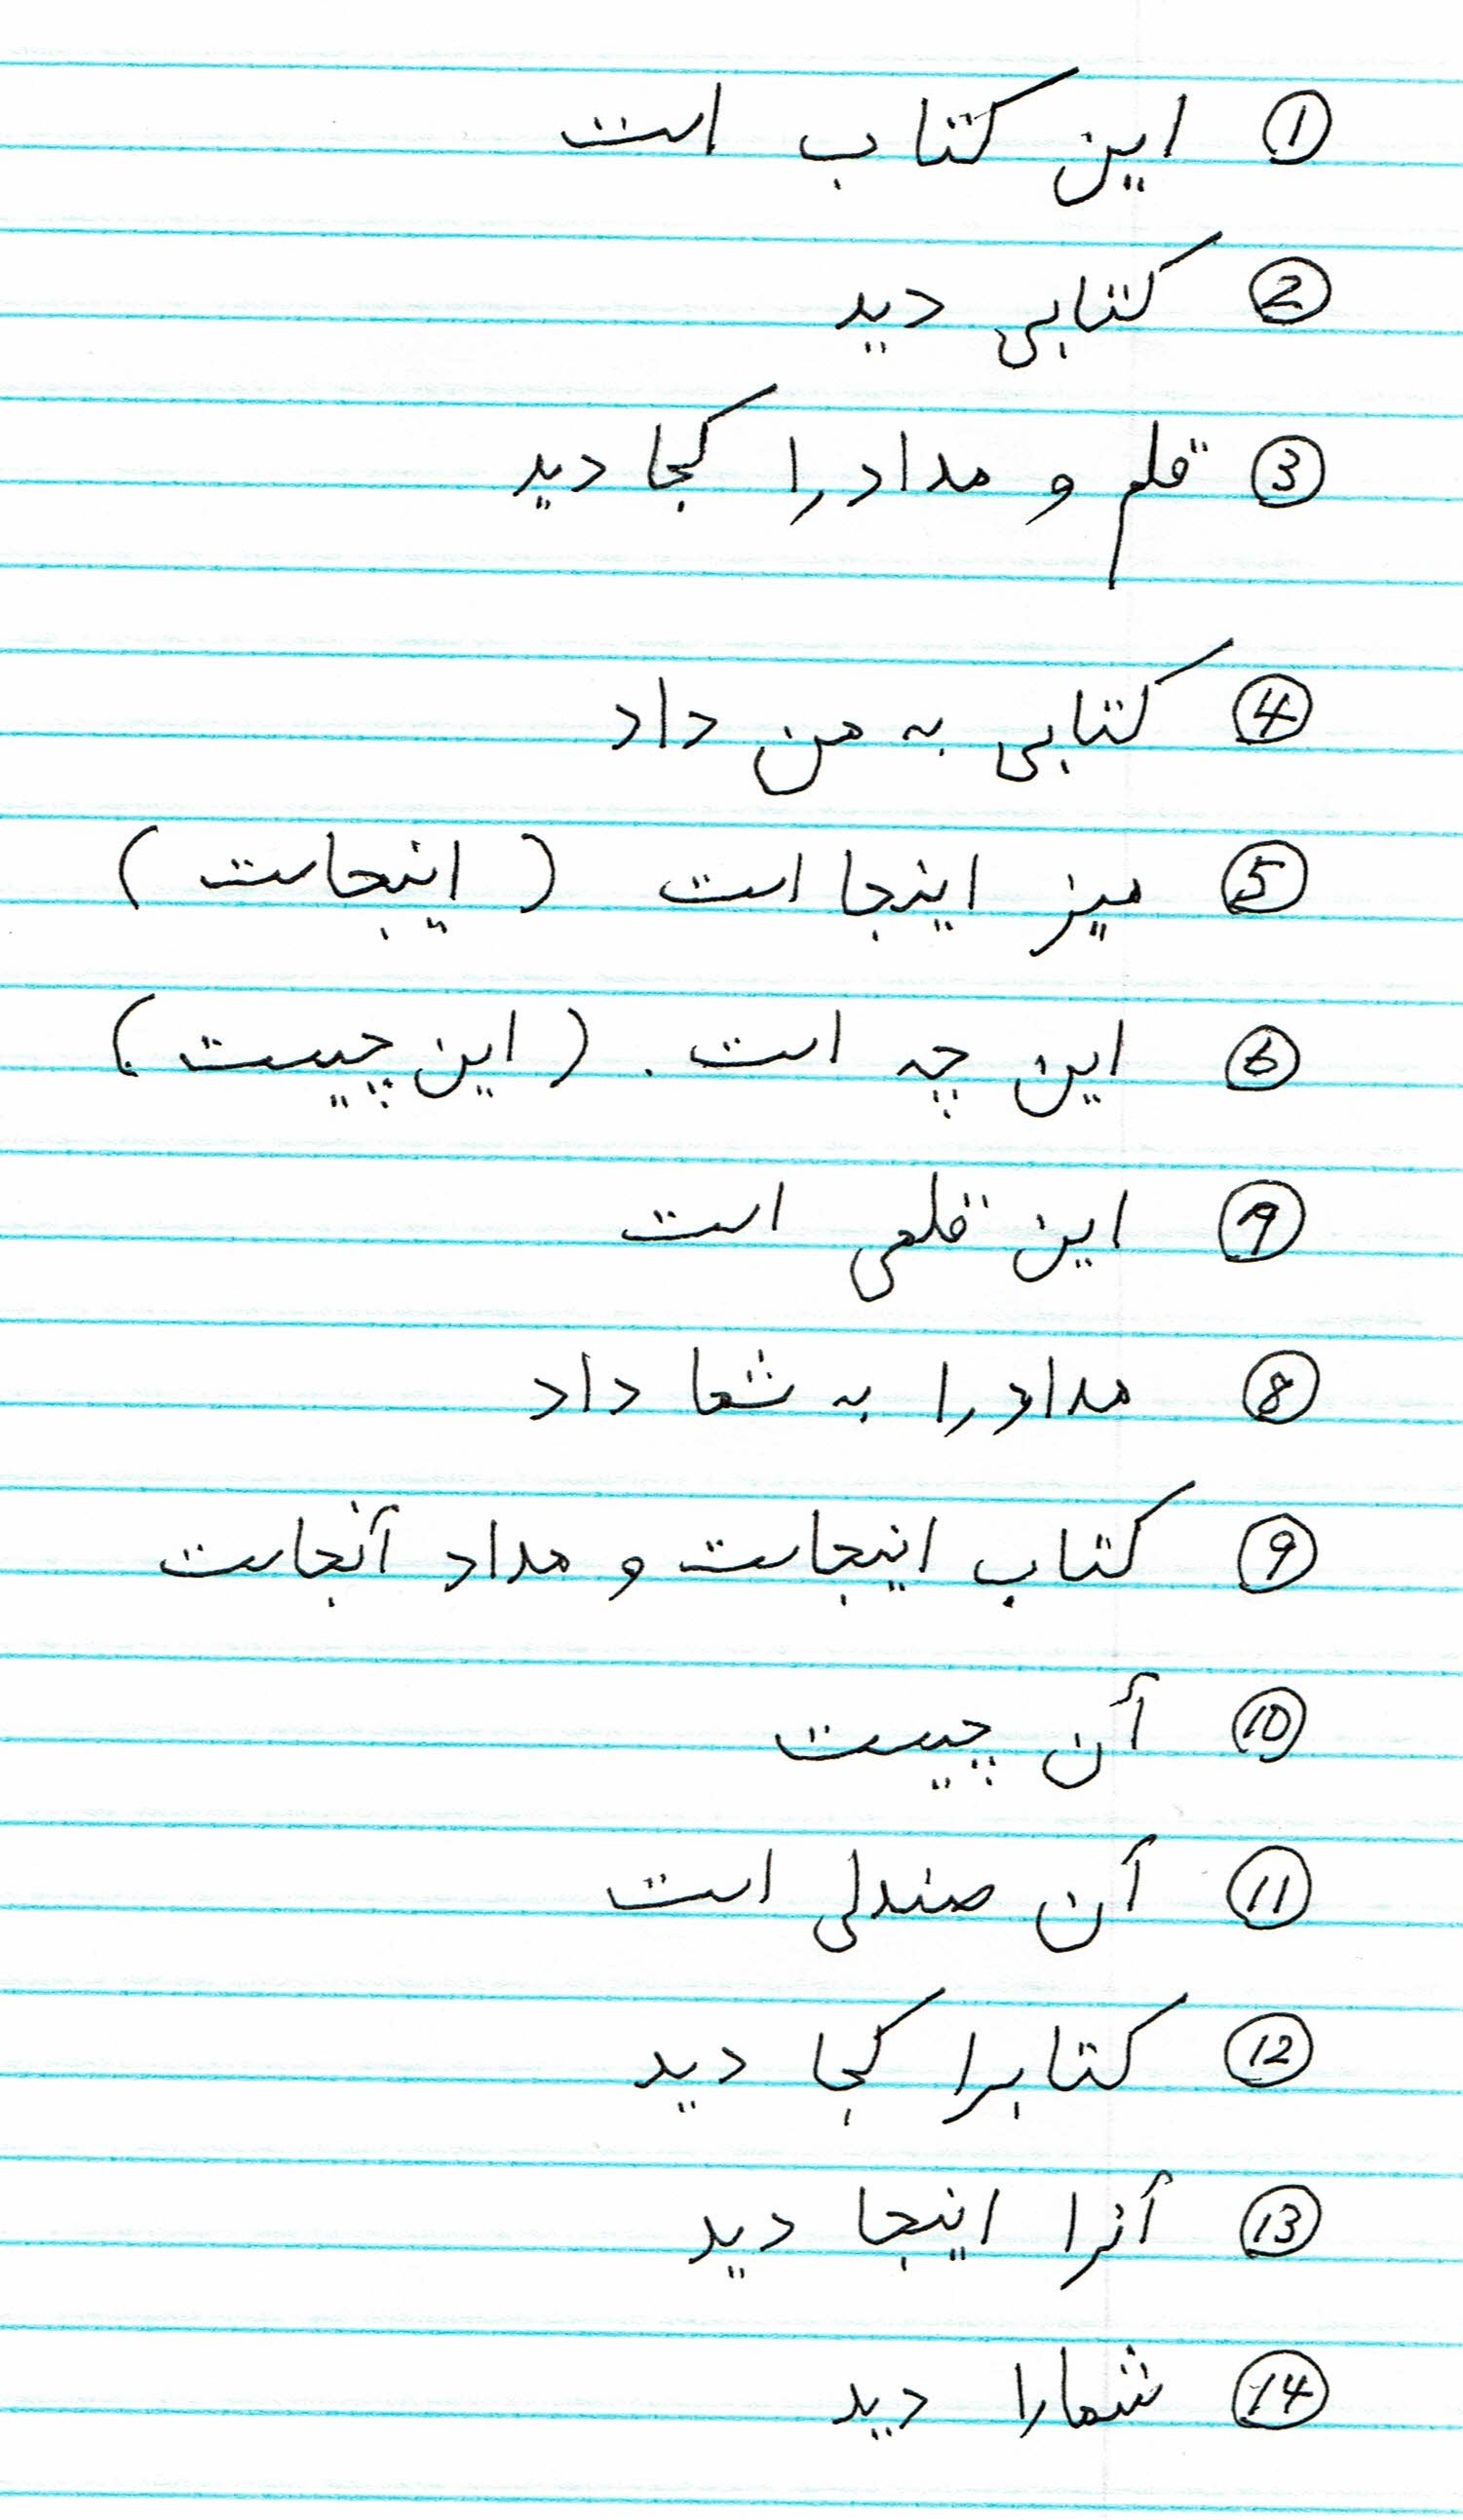 ① این کتاب است
② کتابی دید
③ قلم و مداد را کجا دید
④ کتابی به من داد
⑤ میز اینجا است (اینجاست)
⑥ این چه است. (این چیست)
⑦ این قلمی است
⑧ مداد را به شما داد
⑨ کتاب اینجاست و مداد آنجاست
⑩ آن چیست
⑪ آن صندلی است
⑫ کتابرا کجا دید
⑬ آنرا اینجا دید
⑭ شمارا دید